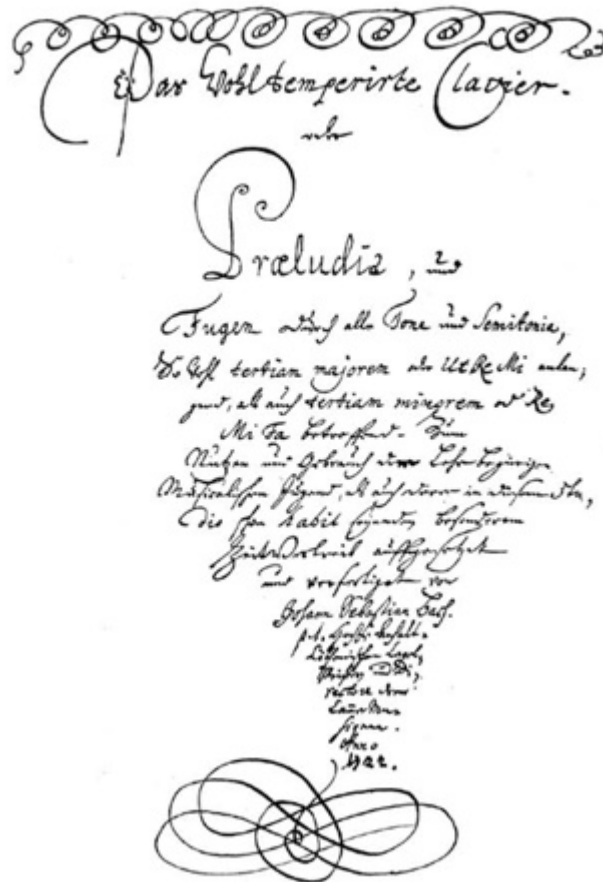 Das Wohltemperirte Clavier.
oder
Præludia, und
Fugen durch alle Tone und Semitonia,
So wohl tertiam majorem oder Ut Re Mi anlan,
gend, als auch tertiam minorem oder Re
Mi Fa betreffend. Zum
Nutzen und Gebrauch der Lehr-begierigen
Musicalischen Jugend, als auch derer in diesem stu,
dio schon habil seyenden besonderem
Zeitvertreib auffgesetzet
und verfertiget von
Johann Sebastian Bach.
p. t. Hochf. Anhalt-
Cöthenischen Capel,
Meistern und Di,
rectore derer
Camer Mu-
siquen.
Anno
1722.